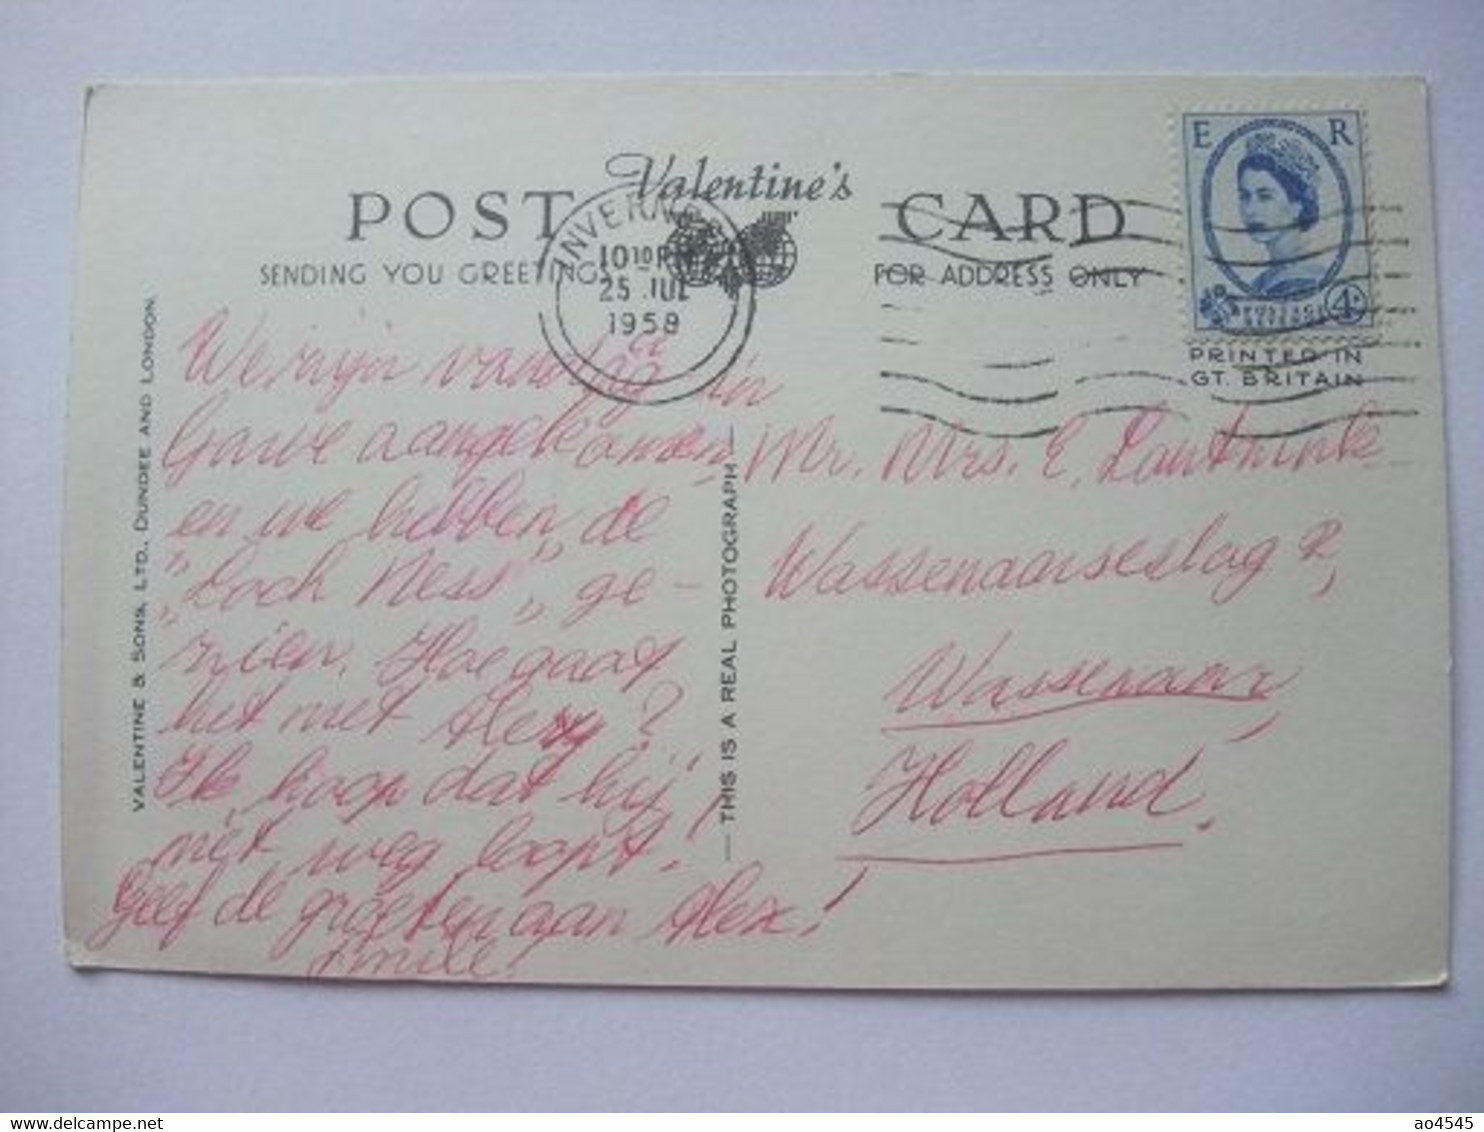 Valentine's
POST CARD
SENDING YOU GREETINGS
FOR ADDRESS ONLY
INVERN
10 10 P
25 JUL
1958
E R
4
PRINTED IN
GT. BRITAIN
VALENTINE & SONS, LTD., DUNDEE AND LONDON.
THIS IS A REAL PHOTOGRAPH
We zijn vandaag in
aangekomen
en we hebben de
"Loch Ness" ge-
zien. Hoe gaat
het met Alex?
Ik hoop dat hij
niet weg loopt.
Geef de groeten aan Alex!
Emile.
Mr. Mrs. E.
Wassenaarseslag 2,
Wassenaar,
Holland.
delcampe.net
ao4545